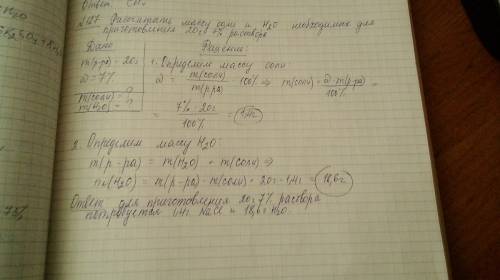 Ответ: CH₄
№127 Рассчитать массу соли и H₂O необходимых для
приготовления 20г 7% раствора
Дано
m(р-ра) = 20г
ω = 7%
m(соли) = ?
m(H₂O) = ?
Решение:
1. Определяем массу соли
ω = m(соли) / m(р-ра) · 100% ⇒ m(соли) = ω · m(р-ра) / 100% =
= 7% · 20г / 100% = 1,4г
2. Определяем массу H₂O
m(р-ра) = m(H₂O) + m(соли) ⇒
m(H₂O) = m(р-ра) - m(соли) = 20г - 1,4г = 18,6г
Ответ для приготовления 20г 7% раствора
потребуется 1,4г NaCl и 18,6г H₂O.